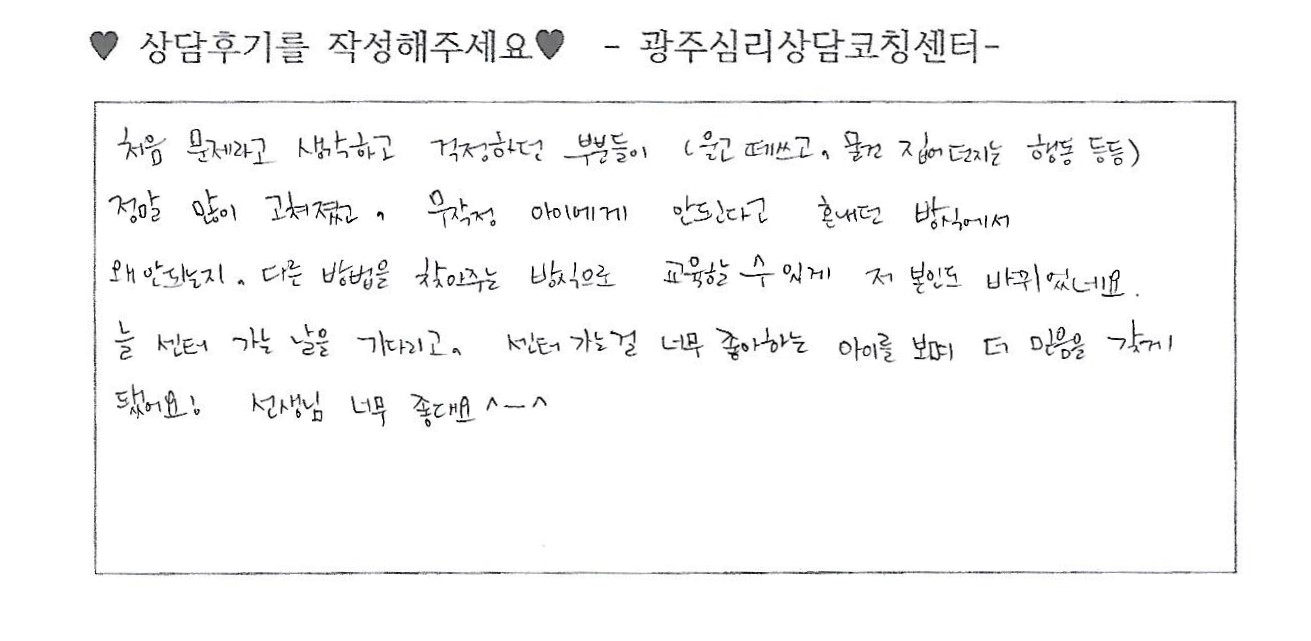 ♥ 상담후기를 작성해주세요♥ - 광주심리상담코칭센터-
처음 문제라고 생각하고 걱정하던 부분들이 (울고 떼쓰고, 물건 집어던지는 행동 등등)
정말 많이 고쳐졌고, 무작정 아이에게 안된다고 혼내던 방식에서
왜 안되는지, 다른 방법을 찾아주는 방식으로 교육할 수 있게 저 본인도 바뀌었네요.
늘 센터 가는 날을 기다리고, 센터 가는걸 너무 좋아하는 아이를 보며 더 믿음을 갖게
됐어요! 선생님 너무 좋대요 ^ㅡ^